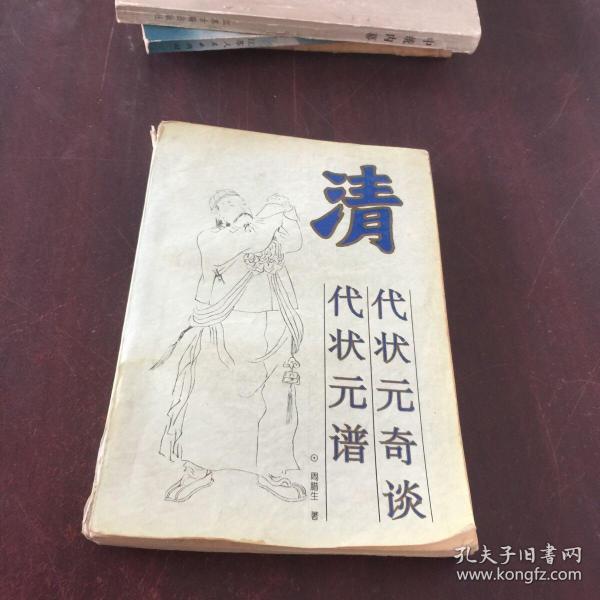 清
代状元奇谈
代状元谱
⊙周腊生 著
孔夫子旧书网
www.kongfz.com